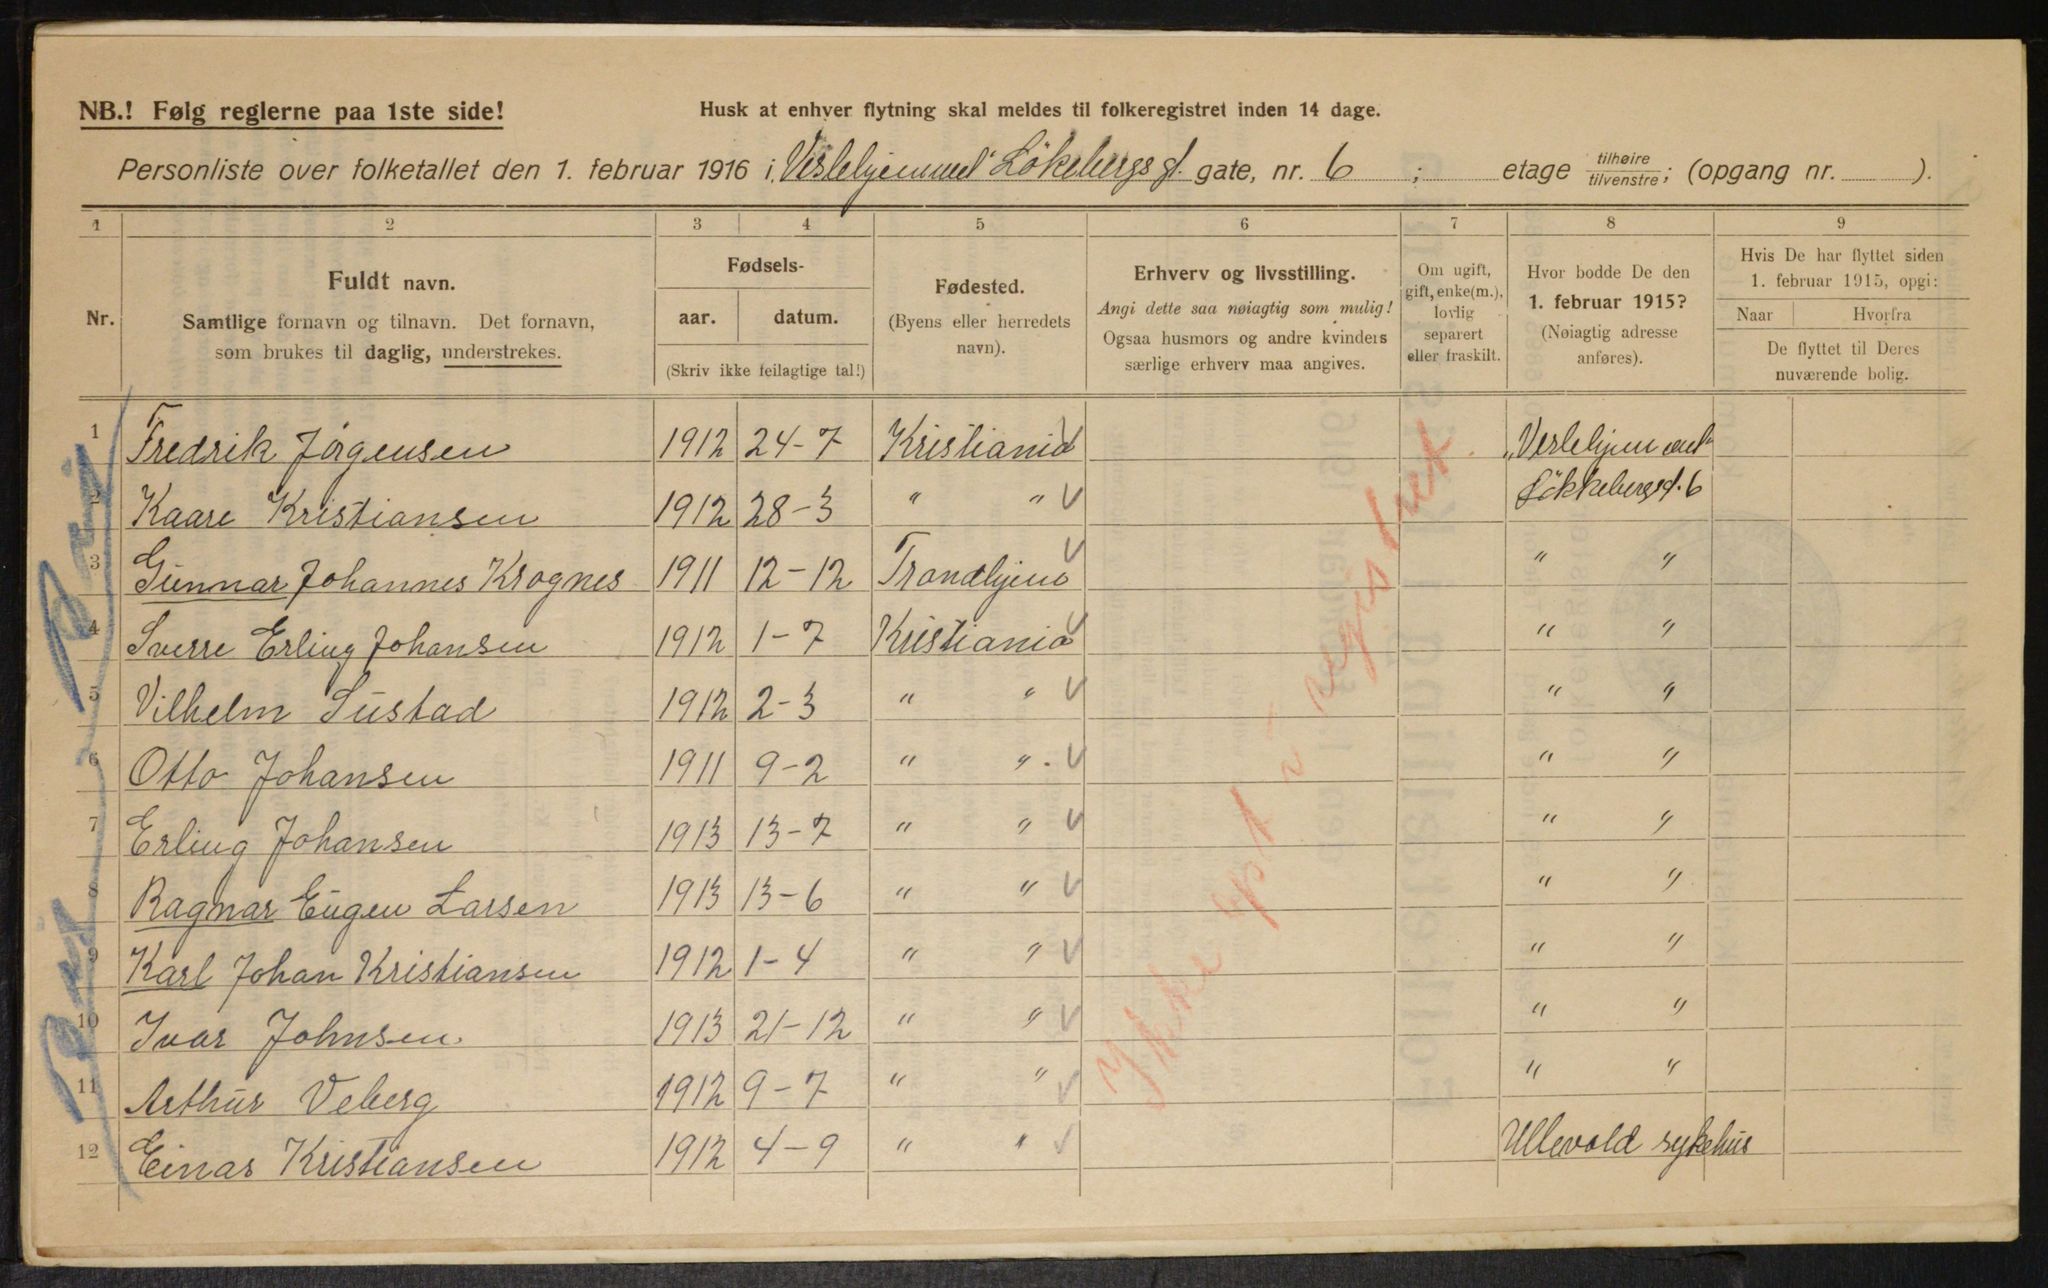 NB.! Følg reglerne paa 1ste side!
Husk at enhver flytning skal meldes til folkeregistret inden 14 dage.
Personliste over folketallet den 1. februar 1916 i „Veslehjemmet" Lökebergs gt. gate, nr. 6 ; etage tilhøire/tilvenstre; (opgang nr. ).
1 2 3 4 5 6 7 8 9
Nr.
Fuldt navn.
Samtlige fornavn og tilnavn. Det fornavn,
som brukes til daglig, understrekes.
Fødsels-
aar. datum.
(Skriv ikke feilagtige tal!)
Fødested.
(Byens eller herredets
navn).
Erhverv og livsstilling.
Angi dette saa nøiagtig som mulig!
Ogsaa husmors og andre kvinders
særlige erhverv maa angives.
Om ugift,
gift, enke(m.),
lovlig
separert
eller fraskilt.
Hvor bodde De den
1. februar 1915?
(Nøiagtig adresse
anføres).
Hvis De har flyttet siden
1. februar 1915, opgi:
Naar Hvorfra
De flyttet til Deres
nuværende bolig.
1 Fredrik Jörgensen 1912 24-7 Kristiania „Veslehjemmet"
2 Kaare Kristiansen 1912 28-3 " " Lökkebergsgt. 6
3 Gunnar Johannes Krognes 1911 12-12 Trondhjem " "
4 Sverre Erling Johansen 1912 1-7 Kristiania " "
5 Vilhelm Sustad 1912 2-3 " " " "
6 Otto Johansen 1911 9-2 " " " "
7 Erling Johansen 1913 13-7 " " " "
8 Ragnar Eugen Larsen 1913 13-6 " " " "
9 Karl Johan Kristiansen 1912 1-4 " " " "
10 Ivar Johnsen 1913 21-12 " " " "
11 Arthur Veberg 1912 9-7 " " " "
12 Einar Kristiansen 1912 4-9 " " Ullevold sykehus
Ikke opt i registret